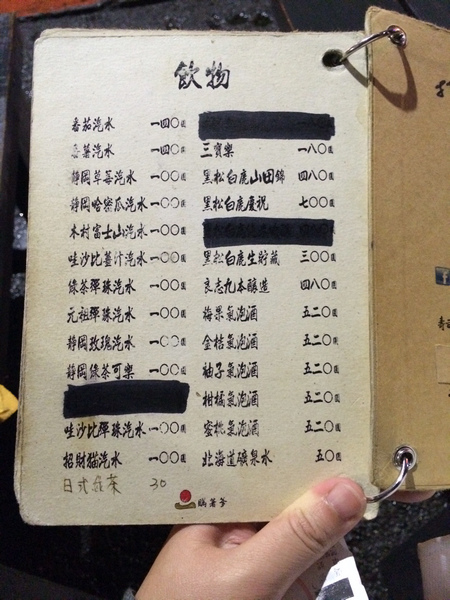 飲物
番茄汽水 一四〇圓
香菜汽水 一四〇圓
靜岡草莓汽水 一〇〇圓
靜岡哈密瓜汽水 一〇〇圓
木村富士山汽水 一〇〇圓
哇沙比薑汁汽水 一〇〇圓
綠茶彈珠汽水 一〇〇圓
元祖彈珠汽水 一〇〇圓
靜岡玫瑰汽水 一〇〇圓
靜岡綠茶可樂 一〇〇圓
哇沙比彈珠汽水 一〇〇圓
招財貓汽水 一〇〇圓
日式綠茶 30
三寶樂 一八〇圓
黑松白鹿山田錦 四八〇圓
黑松白鹿慶祝 七〇〇圓
黑松白鹿生貯藏 三〇〇圓
良志久本釀造 四八〇圓
梅果氣泡酒 五二〇圓
金桔氣泡酒 五二〇圓
柚子氣泡酒 五二〇圓
柑橘氣泡酒 五二〇圓
蜜桃氣泡酒 五二〇圓
北海道礦泉水 五〇圓